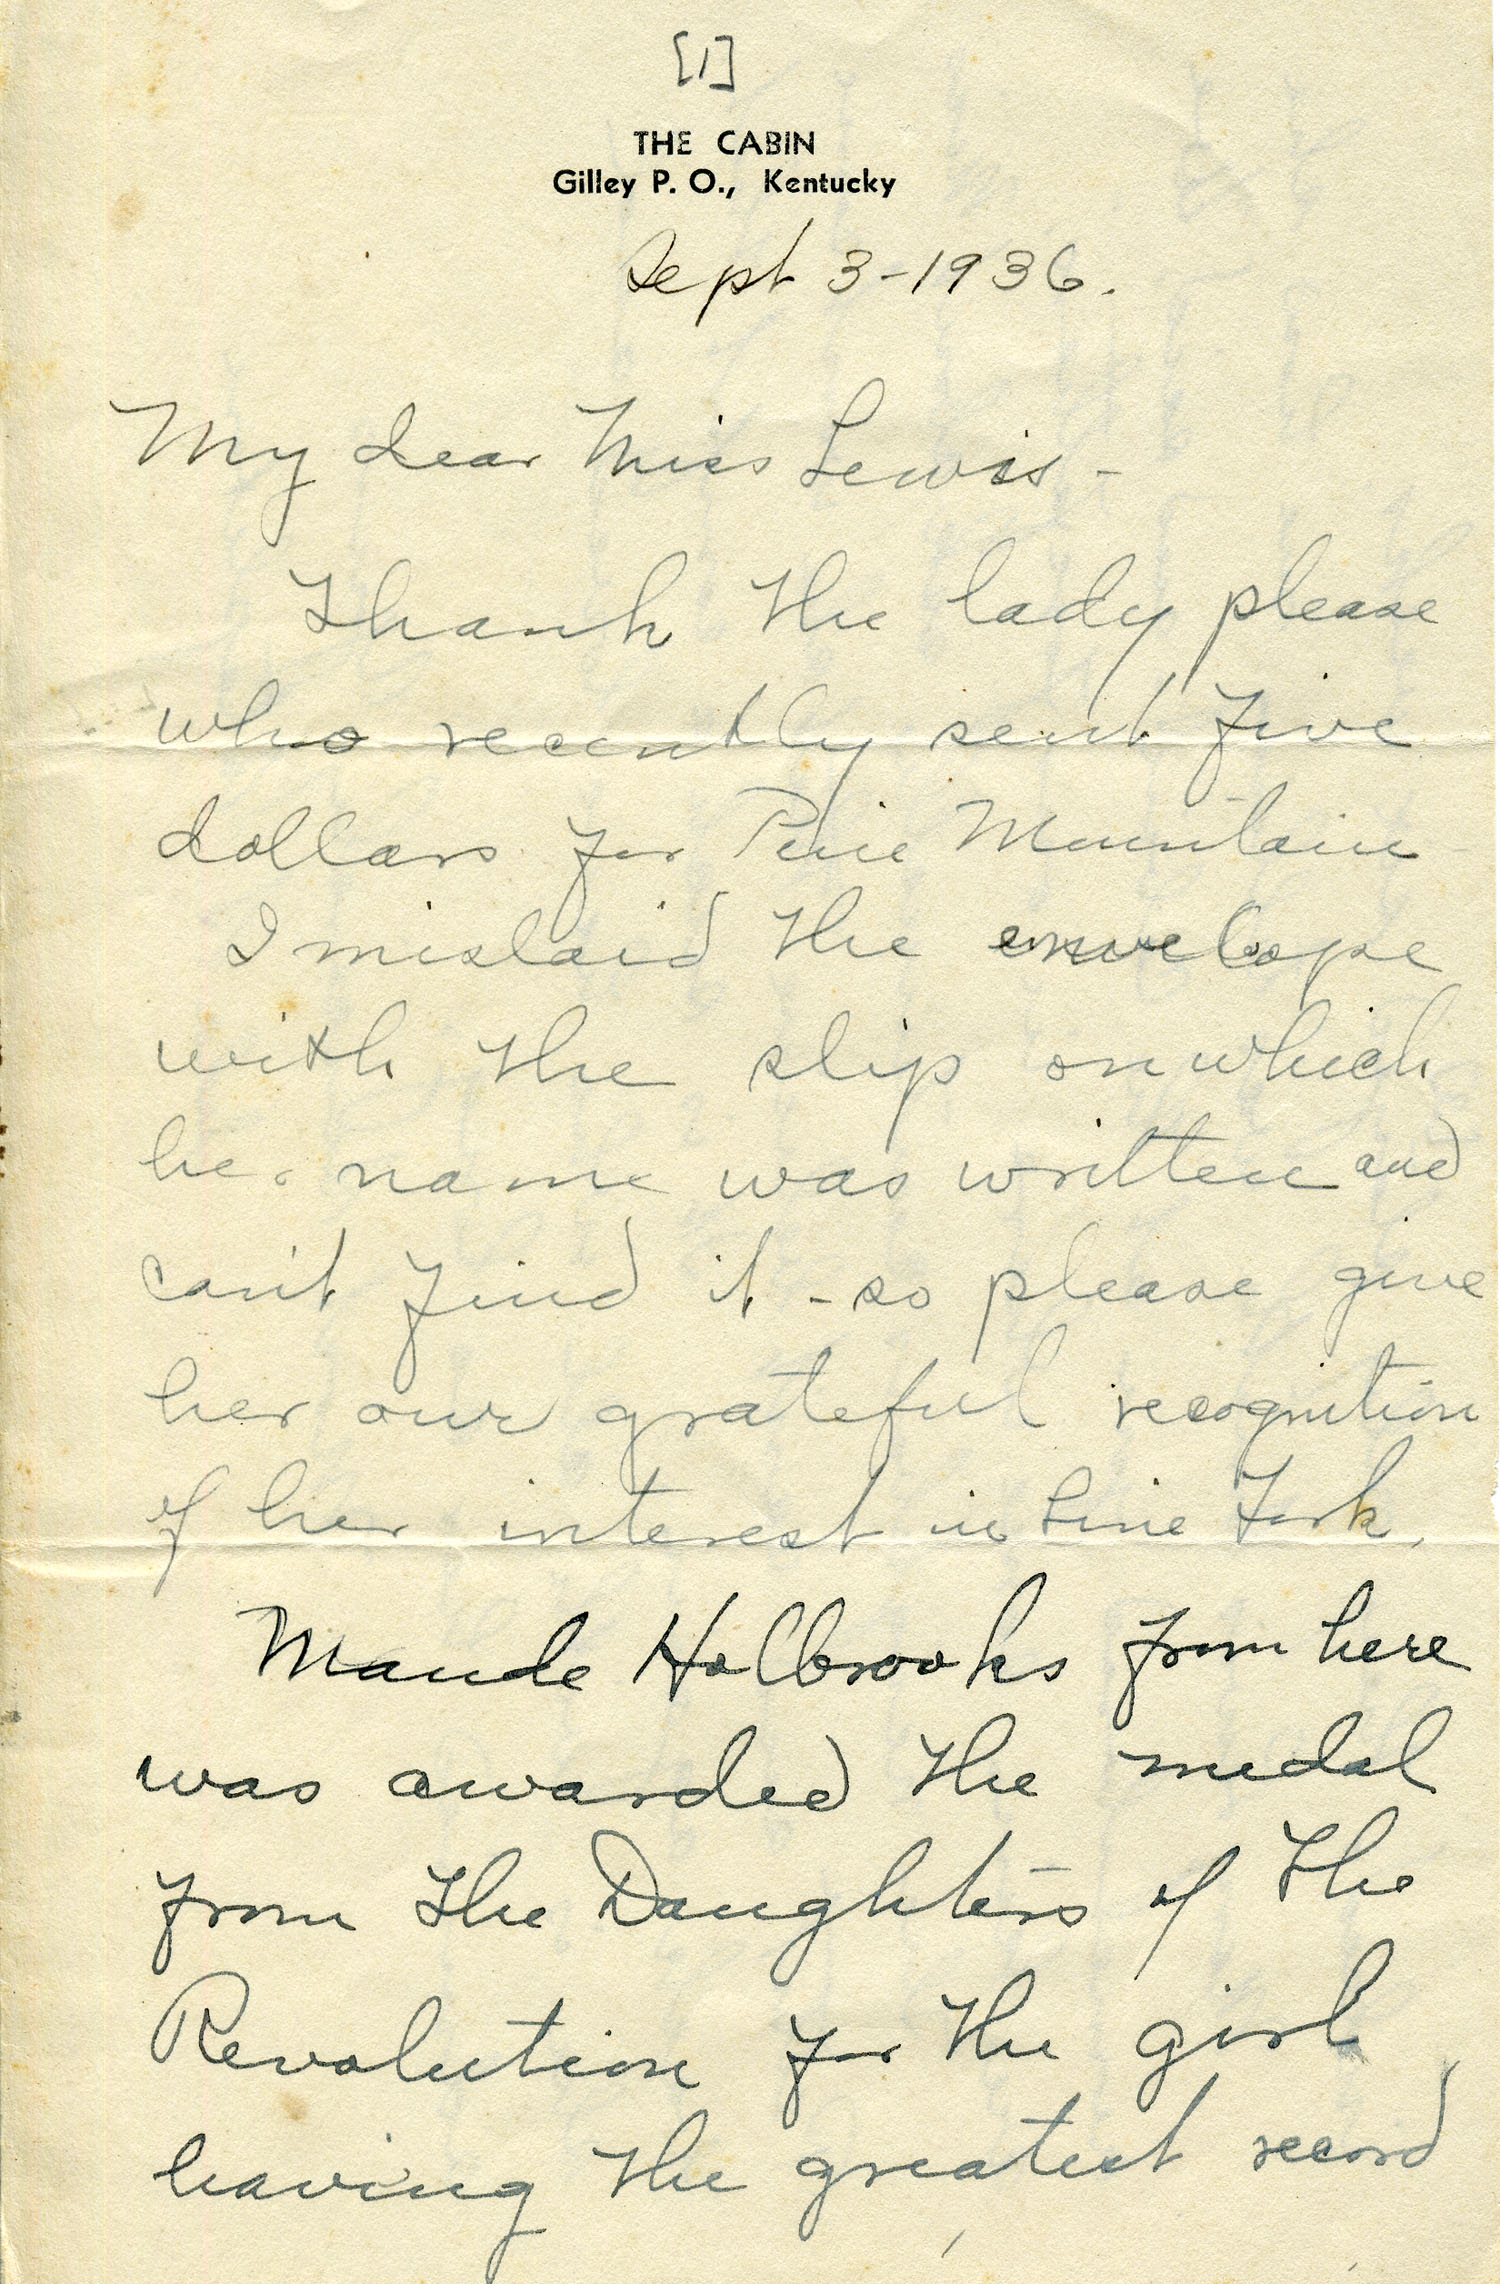 [1]
THE CABIN
Gilley P. O., Kentucky
Sept 3-1936.
My dear Miss Lewis -
Thank the lady please
who recently sent five
dollars for Pine Mountain
I mislaid the envelope
with the slip on which
her name was written and
can't find it - so please give
her our grateful recognition
of her interest in Line Fork.
Maude Holbrooks from here
was awarded the medal
from the Daughters of the
Revolution for the girl
leaving the greatest record